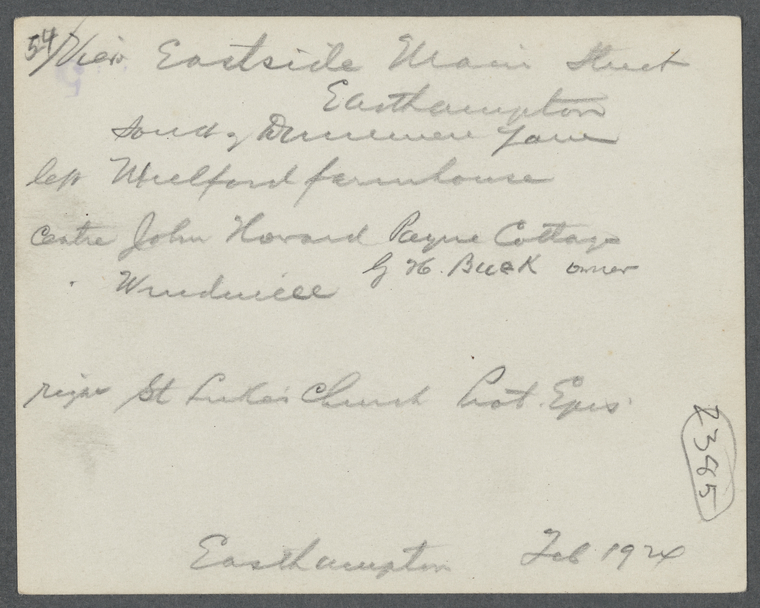 54/View Eastside Main Street
Easthampton
South of Dunemere Lane
left Mulford farmhouse
centre John Howard Payne Cottage
G H. Buek owner
Windmill
right St Luke's Church Prot. Epis.
2385
Easthampton Feb 1924